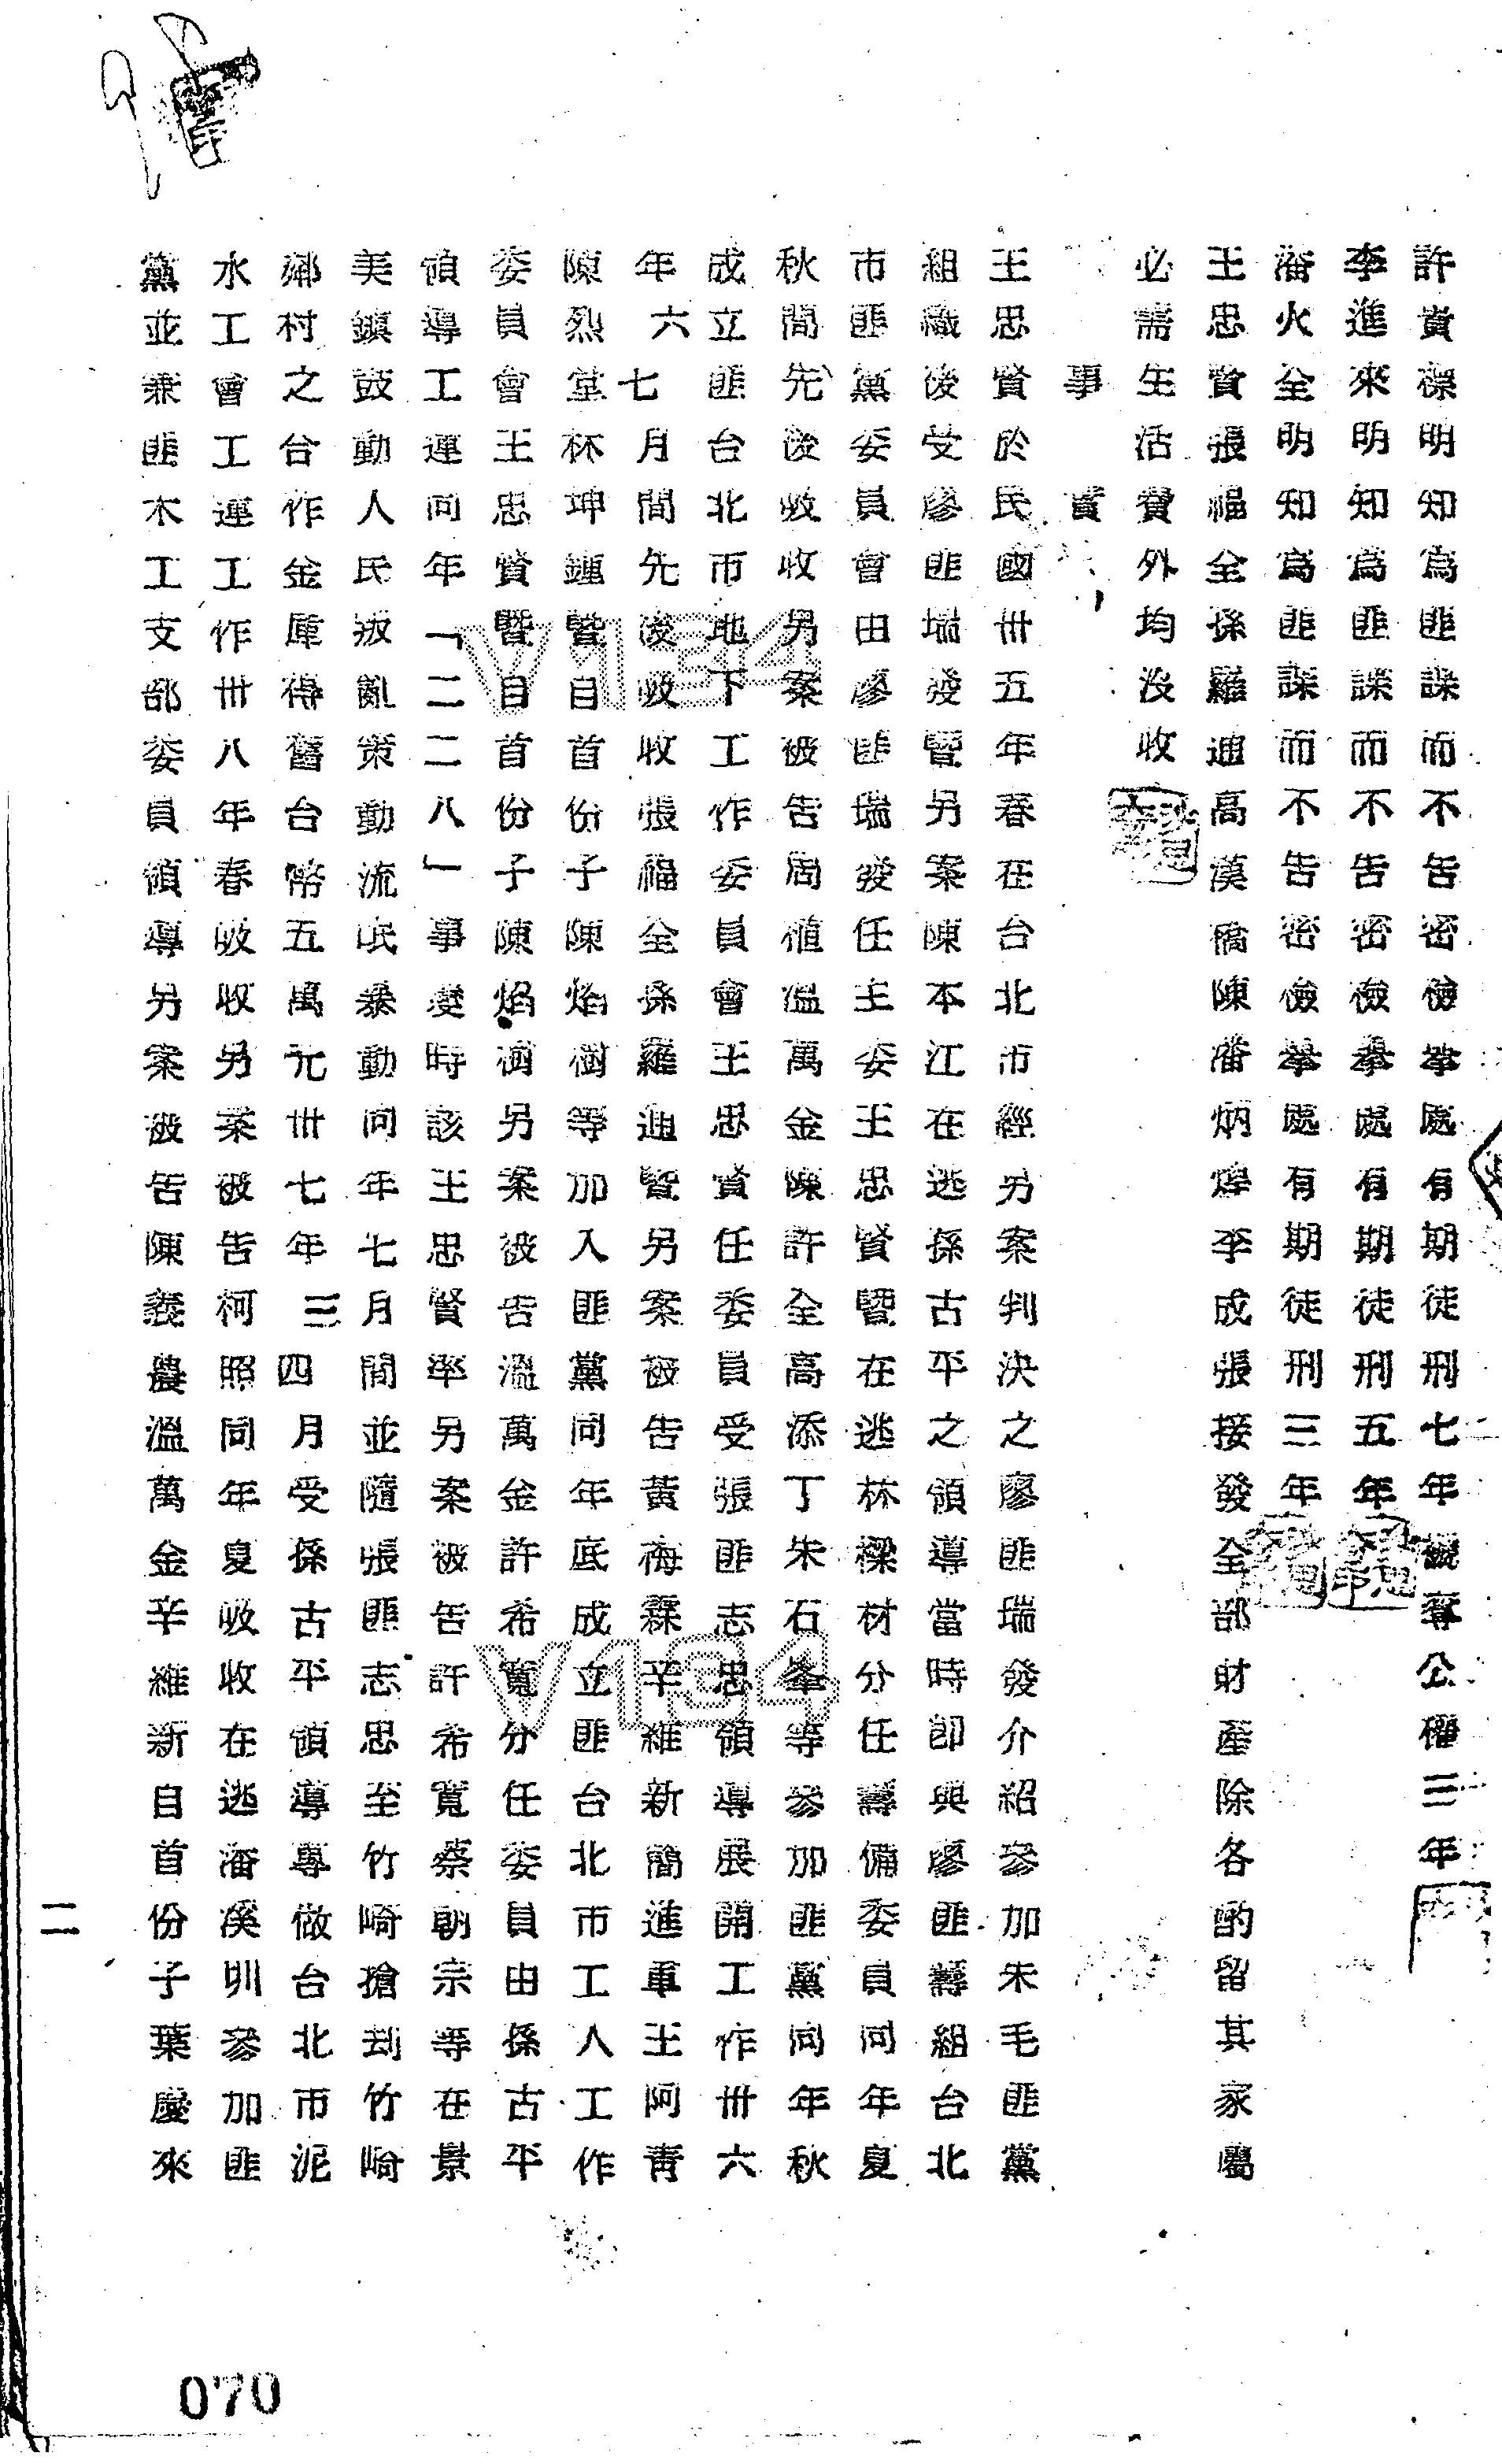 許貴標明知為匪諜而不告密檢舉處有期徒刑七年褫奪公權三年
李進來明知為匪諜而不告密檢舉處有期徒刑五年
潘火全明知為匪諜而不告密檢舉處有期徒刑三年
王忠賢張福全孫羅通高漢橋陳潘炳煌李成張接發全部財產除各酌留其家屬
必需生活費外均沒收
事實
王忠賢於民國卅五年春在台北市經另案判決之廖匪瑞發介紹參加朱毛匪黨
組織後受廖匪瑞發暨另案陳本江在逃孫古平之領導當時即與廖匪籌組台北
市匪黨委員會由廖匪瑞發任主委王忠賢暨在逃林樑材分任籌備委員同年夏
秋間先後吸收另案被告周植溫萬金陳許全高添丁朱石峯等參加匪黨同年秋
成立匪台北市地下工作委員會王忠賢任委員受張匪志忠領導展開工作卅六
年六七月間先後吸收張福全孫羅通暨另案被告黃梅霖辛維新簡進軍王阿青
陳烈堂林坤鍾暨自首份子陳焰樹等加入匪黨同年底成立匪台北市工人工作
委員會王忠賢暨自首份子陳焰樹另案被告溫萬金許希寬分任委員由孫古平
領導工運同年「二二八」事變時該王忠賢率另案被告許希寬蔡朝宗等在景
美鎮鼓動人民叛亂策動流氓暴動同年七月間並隨張匪志忠至竹崎搶刼竹崎
鄰村之台作金庫得舊台幣五萬元卅七年三四月受孫古平領導專做台北市泥
水工會工運工作卅八年春吸收另案被告柯照同年夏吸收在逃潘溪圳參加匪
黨並兼匪木工支部委員領導另案被告陳義農溫萬金辛維新自首份子葉慶來
二
070
V134
V134